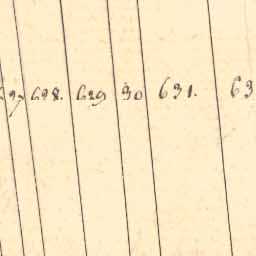 628. 629 30 631. 63